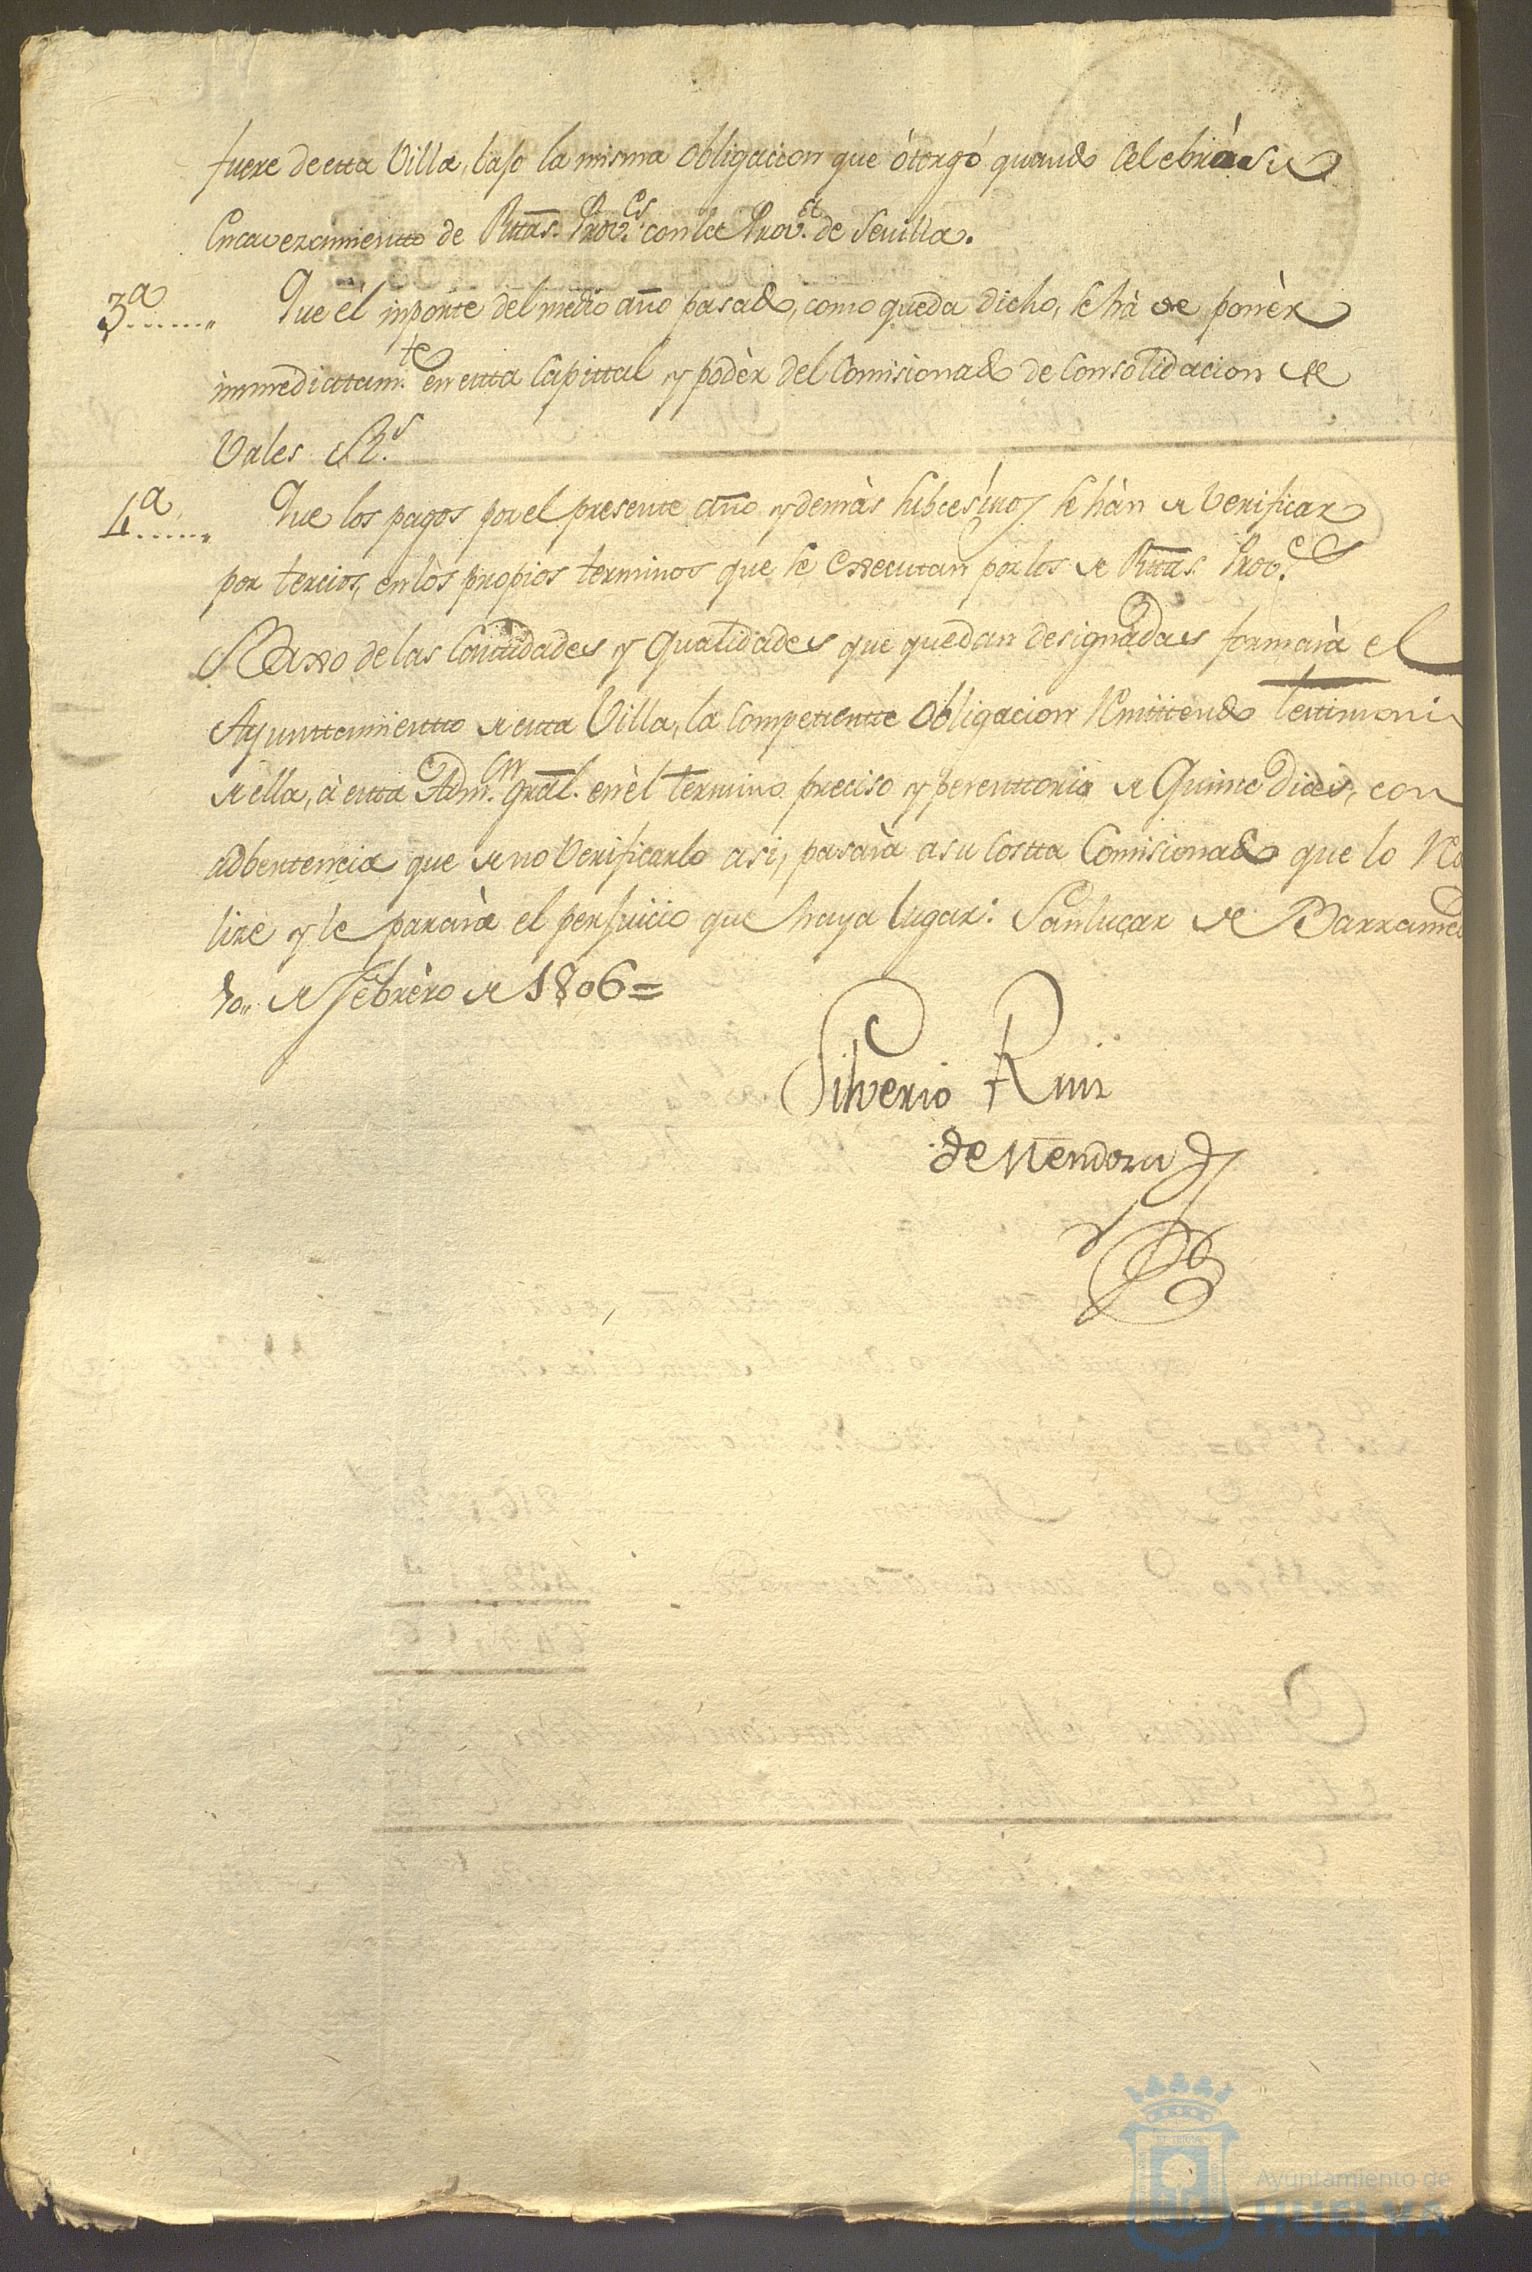 fuere de esta Villa, bajo la misma obligacion que ótorgó quando celebrò su
Encavezamientto de Rttas. Prov.es con la Prov.a de Sevilla.
3.a Que él inporte del medio año pasado, como queda dicho, se hà de ponèr
immediatam.te en esta Capittal y podèr del Comisionado de Consolidacion de
Vales R.s
4.a Que los pagos por el presente año y demàs subcesivos se hàn de Verificar
por tercios, en lòs propios terminos que se executan por los de Rttas. Prov.es
Baxo de las Cantidades y Qualidades que quedan designadas formarà el
Ayunttamientto de esta Villa, la competentte Obligacion remitiendo testimoni
de ella, à esta Adm.on gral. en èl termino preciso y perenttorio de Quince dias, con
adbertencia que de no Verificarlo asi, pasarà a su costta Comisionado que lo rea
lize y le pararà el perjuicio que haya lugar: Sanlucar de Barrame
de Febrèro de 1806=
Silverio Ruiz
de Mendoza
Ayuntamiento de
HUELVA